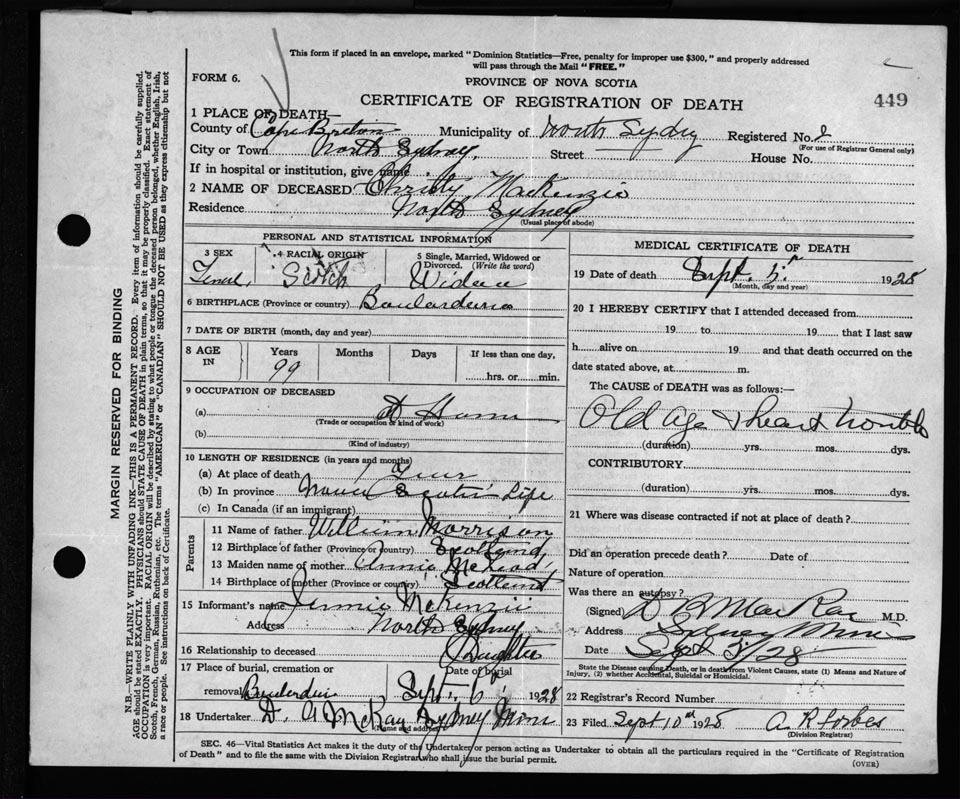 This form if placed in an envelope, marked "Dominion Statistics—Free, penalty for improper use $300," and properly addressed
will pass through the Mail "FREE."
FORM 6.
PROVINCE OF NOVA SCOTIA
CERTIFICATE OF REGISTRATION OF DEATH
449
1 PLACE OF DEATH—
County of Cape Breton Municipality of North Sydney Registered No.
(For use of Registrar General only)
City or Town North Sydney, Street House No.
If in hospital or institution, give name
2 NAME OF DECEASED Christy MacKenzie
Residence North Sydney
(Usual place of abode)
PERSONAL AND STATISTICAL INFORMATION
3 SEX 4 RACIAL ORIGIN 5 Single, Married, Widowed or Divorced. (Write the word)
Scotch
6 BIRTHPLACE (Province or country)
7 DATE OF BIRTH (month, day and year)
8 AGE IN Years Months Days If less than one day,
99 hrs. or min.
9 OCCUPATION OF DECEASED
(a)
(Trade or occupation or kind of work)
(b)
(Kind of industry)
10 LENGTH OF RESIDENCE (in years and months)
(a) At place of death
(b) In province Nova Scotia Life
(c) In Canada (if an immigrant)
Parents
11 Name of father William Morrison
12 Birthplace of father (Province or country) Scotland
13 Maiden name of mother Annie McLeod
14 Birthplace of mother (Province or country) Scotland
15 Informant's name Jennie McKenzie
Address North Sydney
16 Relationship to deceased Daughter
17 Place of burial, cremation or removal Date of burial
Sept. 6 1928
18 Undertaker D. A McKay Sydney Mines
(Name and address)
MEDICAL CERTIFICATE OF DEATH
19 Date of death Sept. 5 1928
(Month, day and year)
20 I HEREBY CERTIFY that I attended deceased from
19 to 19 that I last saw
h alive on 19 and that death occurred on the
date stated above, at m.
The CAUSE of DEATH was as follows:—
Old age & heart trouble
(duration) yrs. mos. dys.
CONTRIBUTORY.
(duration) yrs. mos. dys.
21 Where was disease contracted if not at place of death?
Did an operation precede death? Date of
Nature of operation
Was there an autopsy?
(Signed) M.D.
Address Sydney Mines
Date Sept 5/28
State the Disease causing Death, or in death from Violent Causes, state (1) Means and Nature of
Injury, (2) whether Accidental, Suicidal or Homicidal.
22 Registrar's Record Number
23 Filed Sept 10th 1928 A R Forbes
(Division Registrar)
SEC. 46—Vital Statistics Act makes it the duty of the Undertaker or person acting as Undertaker to obtain all the particulars required in the "Certificate of Registration
of Death" and to file the same with the Division Registrar who shall issue the burial permit.
(OVER)
MARGIN RESERVED FOR BINDING
N.B.—WRITE PLAINLY WITH UNFADING INK—THIS IS A PERMANENT RECORD. Every item of information should be carefully supplied.
AGE should be stated EXACTLY. PHYSICIANS should STATE CAUSE OF DEATH in plain terms, so that it may be properly classified. Exact statement of
OCCUPATION is very important. RACIAL ORIGIN will be described by stating to what people or tongue the deceased person belonged, whether English, Irish,
Scotch, French, German, Russian, Ruthenian, etc. The terms "AMERICAN" or "CANADIAN" SHOULD NOT BE USED as they express citizenship but not
a race or people. See instructions on back of Certificate.